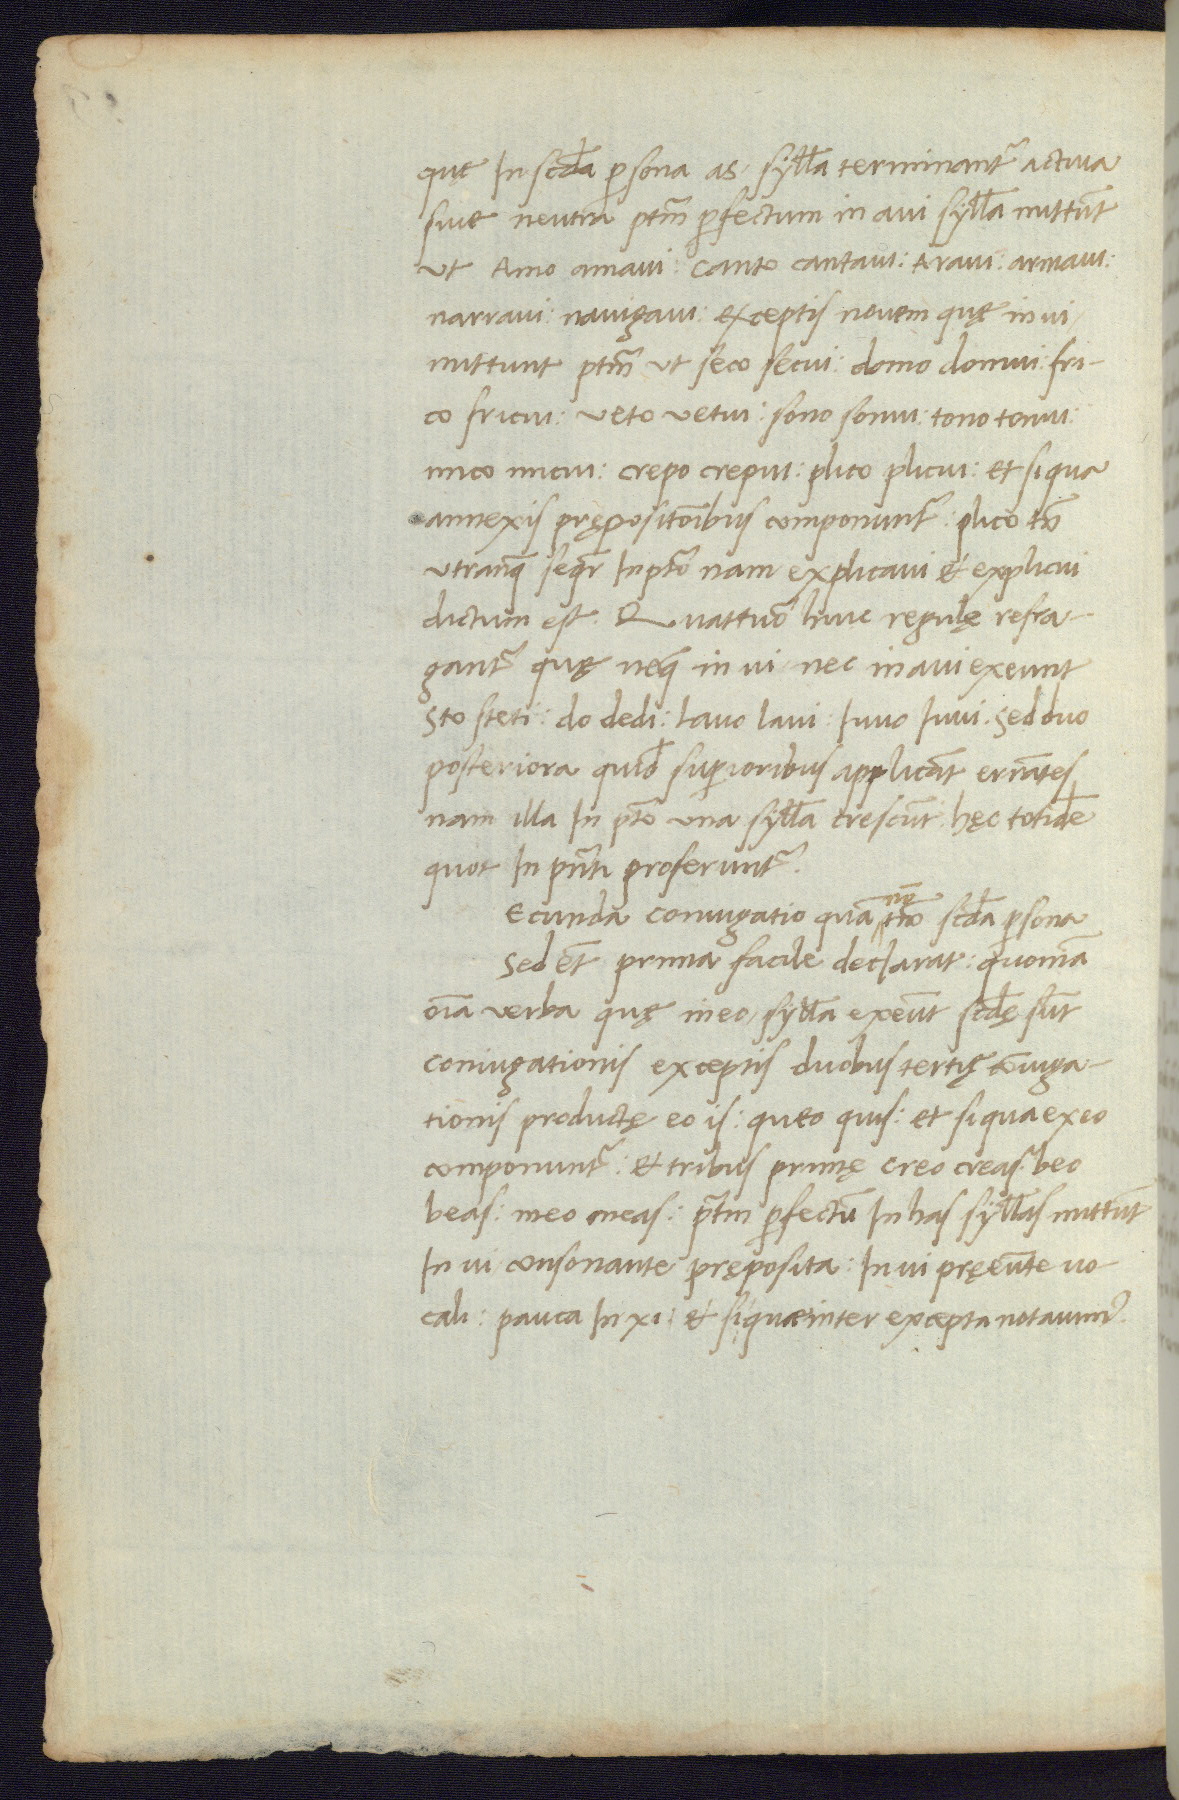 quę In scđa ꝑsona as, sylła terminant᷑ actiua
siue neutra ptm̄ ꝑfectum in aui sylła mittūt
ut Amo amaui: Canto cantaui: Araui: armaui:
narraui: nauigaui: exceptis nouem quę in ui
mittunt ptm̄ ut seco secui: domo domui: fri-
co fricui: veto vetui: sono sonui: tono tonui:
mico micui: crepo crepui: plico plicui: et siqua
annexis pręposit̄oibus componunt᷑: plico tn̄
utranq seqr In ptō nam explicaui et explicui
dictum est. Quattuor huic regulę refra-
gant᷑ quę neq in ui, nec in aui exeunt
Sto steti: do dedi: Lauo laui: Iuuo Iuui. Sed duo
posteriora quiđ suꝑioribus applicāt
nam illa In ptō una sylła crescūt hęc totidē
quot In pn̄ti proferunt᷑.
Ecunda coniugatio quā nō tm̄o scđa ꝑsona
Sed et̄ prima facile declarat: quoniā
oīa verba quę in eo, sylła exeūt scđę sūt
coniugationis exceptis duobus tertię cōiuga-
tionis productę eo is: queo quis: et siqua ex eo
componunt᷑: et tribus primę creo creas: beo
beas: meo meas: ptm̄ ꝑfectū In has syłłas mittūt
In ui consonante pręposita: In ui pręeūte uo-
cali: pauca In xi: et siquae inter excepta notauim᷑